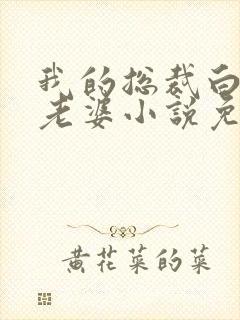 我的总裁白
老婆小説免
黄花菜的菜